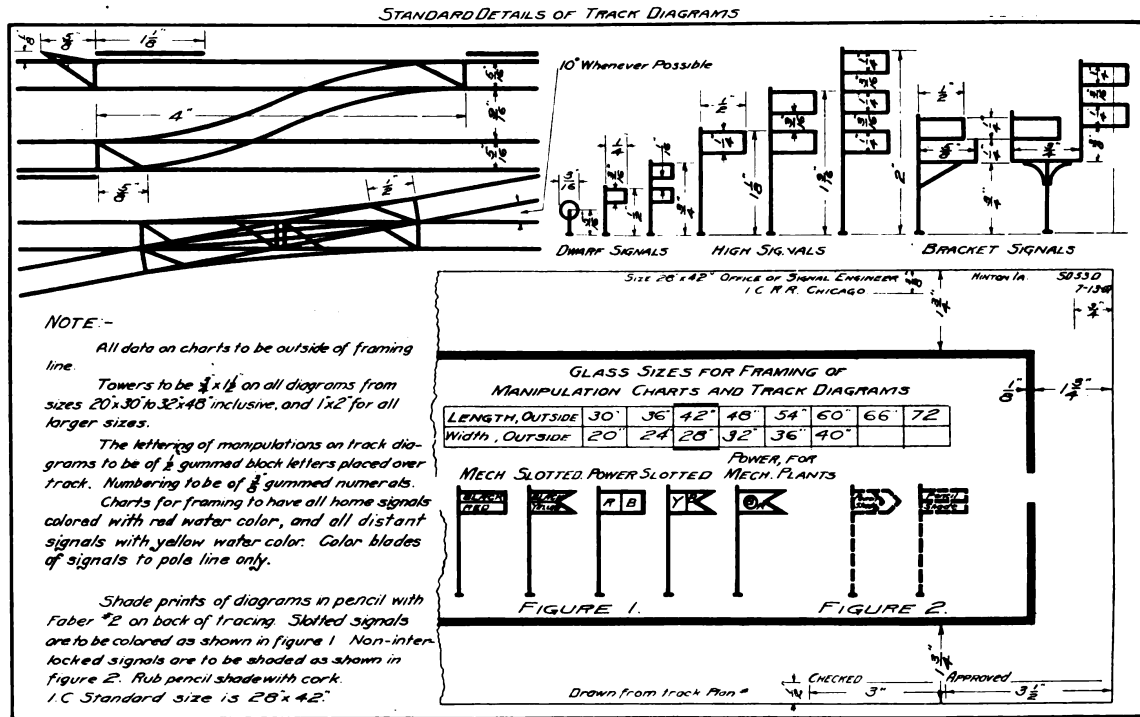 STANDARD DETAILS OF TRACK DIAGRAMS
1/8" 5/8" 1 1/8"
10° Whenever Possible
4"
5/16"
9/16"
5/16"
5/8"
1/2"
DWARF SIGNALS
HIGH SIGNALS
BRACKET SIGNALS
1/2"
1/4"
1 1/8"
2"
3/4"
SIZE 28"x42" OFFICE OF SIGNAL ENGINEER
I.C.R.R. CHICAGO
HINTON IA.
1 3/4"
3/4"
NOTE:-
All data on charts to be outside of framing
line.
Towers to be 3/4"x1 1/2" on all diagrams from
sizes 20"x30" to 32"x48" inclusive, and 1"x2" for all
larger sizes.
The lettering of manipulations on track dia-
grams to be of 1/2" gummed block letters placed over
track. Numbering to be of 3/8" gummed numerals.
Charts for framing to have all home signals
colored with red water color, and all distant
signals with yellow water color. Color blades
of signals to pole line only.
Shade prints of diagrams in pencil with
Faber #2 on back of tracing. Slotted signals
are to be colored as shown in figure 1 Non-inter-
locked signals are to be shaded as shown in
figure 2. Rub pencil shade with cork.
I.C Standard size is 28"x42".
GLASS SIZES FOR FRAMING OF
MANIPULATION CHARTS AND TRACK DIAGRAMS
LENGTH, OUTSIDE 30" 36" 42" 48" 54" 60" 66" 72
Width, OUTSIDE 20" 24" 28" 32" 36" 40"
MECH SLOTTED. POWER SLOTTED POWER, FOR MECH. PLANTS
BLACK
RED
R B
Y B
FIGURE 1.
FIGURE 2.
1/8"
1 3/4"
1 3/4"
Drawn from track Plan #
1/2"
CHECKED
3"
APPROVED
3 1/2"